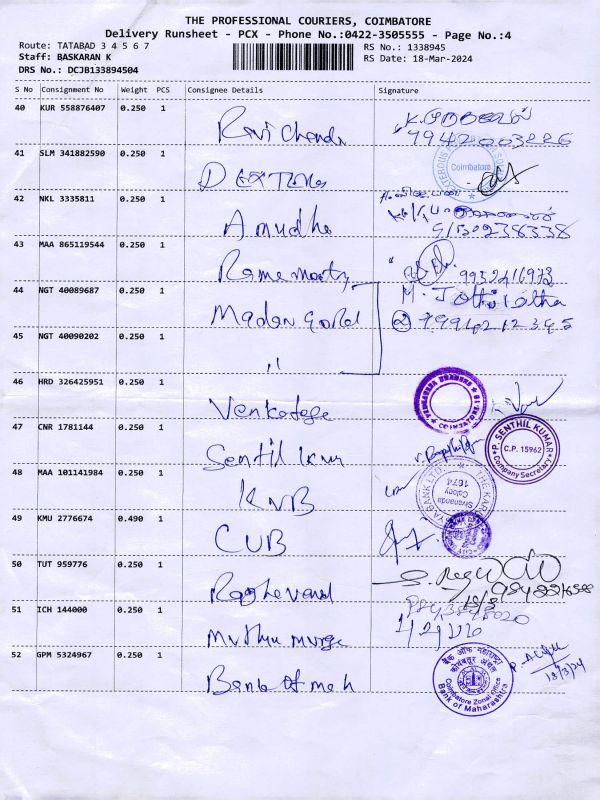 THE PROFESSIONAL COURIERS, COIMBATORE
Delivery Runsheet - PCX - Phone No.:0422-3505555 - Page No.:4
Route: TATABAD 3 4 5 6 7
RS No.: 1338945
Staff: BASKARAN K
RS Date: 18-Mar-2024
DRS No.: DCJB133894504
S No Consignment No Weight PCS Consignee Details Signature
40 KUR 558876407 0.250 1
Ravi Chandr
9942003226
41 SLM 341882590 0.250 1
Coimbatore
42 NKL 3335811 0.250 1
Amudha
9150238338
43 MAA 865119544 0.250 1
Ramamoorty
9952416973
44 NGT 40089687 0.250 1
Madan Gold
M. Jothilatha
45 NGT 40090202 0.250 1
"
46 HRD 326425951 0.250 1
Venkatesa
47 CNR 1781144 0.250 1
Sentil kum
P. SENTHIL KUMAR
C.P. 15962
Company Secretary
48 MAA 101141984 0.250 1
KVB
Sivananda
Colony
1674
49 KMU 2776674 0.490 1
CUB
50 TUT 959776 0.250 1
Raghavend
51 ICH 144000 0.250 1
Muthu muruge
52 GPM 5324967 0.250 1
Bank of mah
बैंक ऑफ महाराष्ट्र
Coimbatore Zonal Office
Bank of Maharashtra
18/3/24